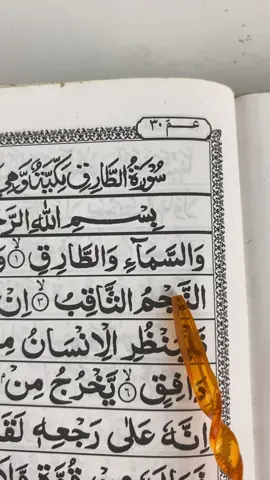 عـم ٣٠
سُوْرَةُ الطَّارِقِ مَكِّيَّةٌ وَّهِيَ
بِسْمِ اللّٰهِ الرَّ
وَالسَّمَآءِ وَالطَّارِقِ ۙ﴿۱﴾ وَ
النَّجْمُ الثَّاقِبُ ۙ﴿۳﴾ اِنْ
يَنْظُرِ الْاِنْسَانُ مِ
دَافِقٍ ۙ﴿۶﴾ يَّخْرُجُ مِنْ
اِنَّهٗ عَلٰى رَجْعِهٖ لَقَ